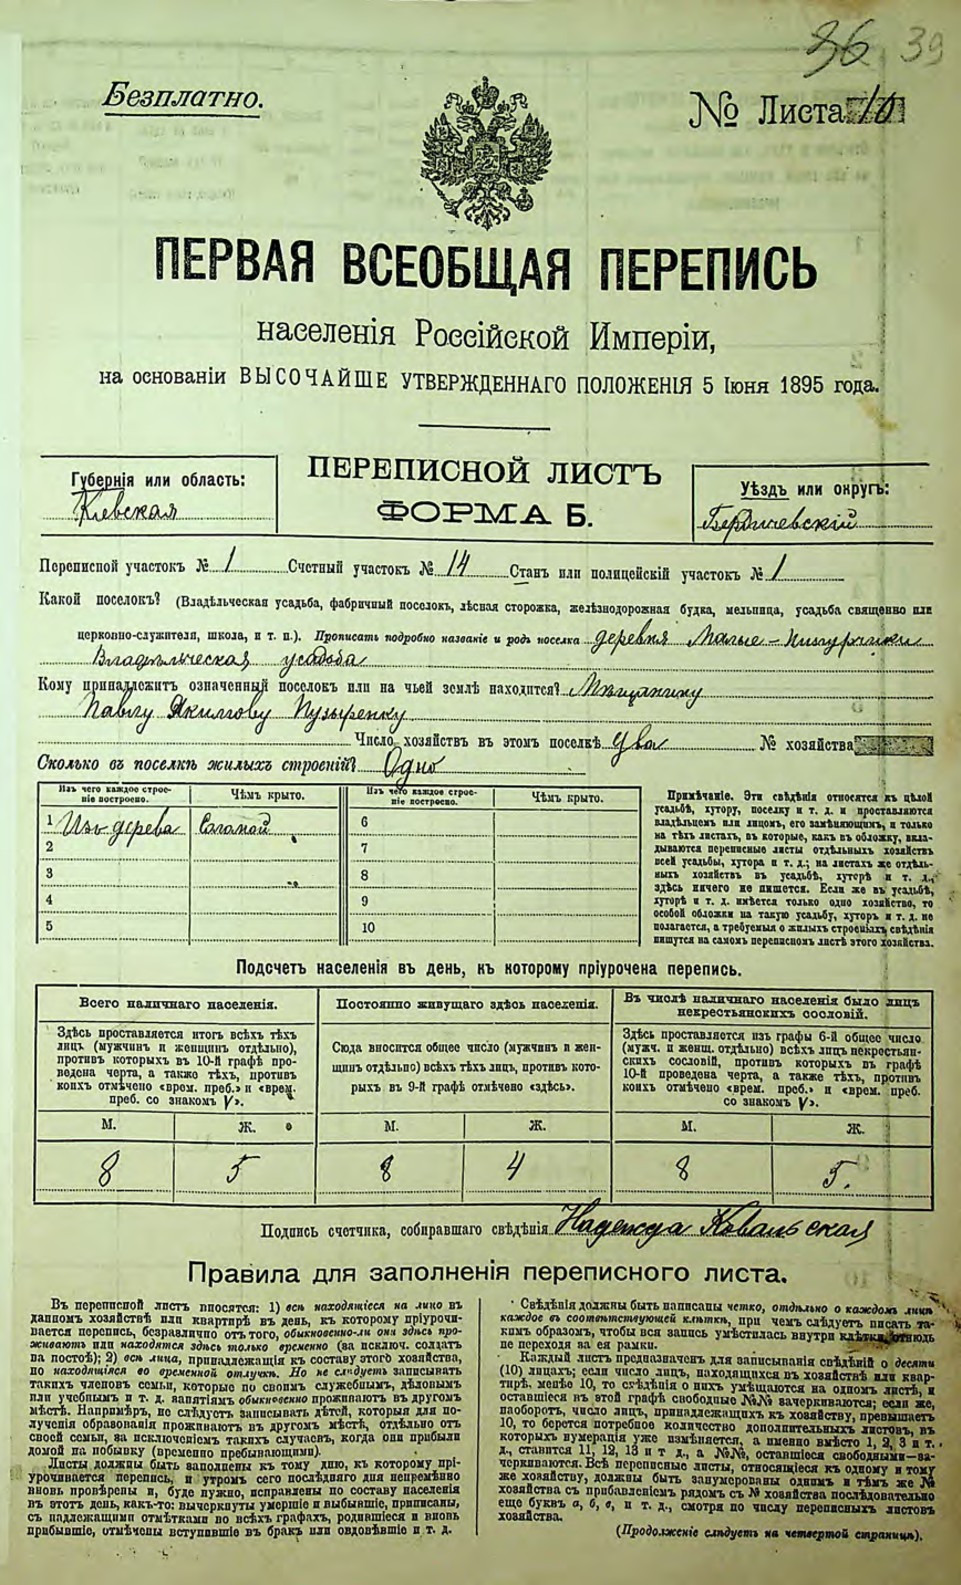 36 39
Безплатно.
№ Листа 10
ПЕРВАЯ ВСЕОБЩАЯ ПЕРЕПИСЬ
населенія Россійской Имперіи,
на основаніи ВЫСОЧАЙШЕ УТВЕРЖДЕННАГО ПОЛОЖЕНІЯ 5 Іюня 1895 года.
Губернія или область:
Кіевская
ПЕРЕПИСНОЙ ЛИСТЪ
ФОРМА Б.
Уѣздъ или округъ:
Бердичевскій
Переписной участокъ № 1 Счетный участокъ № 14 Станъ или полицейскій участокъ № 1
Какой поселокъ? (Владѣльческая усадьба, фабричный поселокъ, лѣсная сторожка, желѣзнодорожная будка, мельница, усадьба священно или
церковно-служителя, школа, и т. п.). Прописать подробно названіе и родъ поселка деревня Малые-
Владѣльческая усадьба
Кому принадлежитъ означенный поселокъ или на чьей землѣ находится? Мѣщанину
Павлу Якимову Пузыренку
Число хозяйствъ въ этомъ поселкѣ два № хозяйства
Сколько въ поселкѣ жилыхъ строеній? Одно
Изъ чего каждое строе-
ніе построено.
Чѣмъ крыто.
Изъ чего каждое строе-
ніе построено.
Чѣмъ крыто.
1 Изъ дерева Соломой 6
2 7
3 8
4 9
5 10
Примѣчаніе. Эти свѣдѣнія относятся къ цѣлой
усадьбѣ, хутору, поселку и т. д. и проставляются
владѣльцемъ или лицомъ, его замѣняющимъ, и только
на тѣхъ листахъ, въ которые, какъ въ обложку, вкла-
дываются переписные листы отдѣльныхъ хозяйствъ
всей усадьбы, хутора и т. д.; на листахъ же отдѣль-
ныхъ хозяйствъ въ усадьбѣ, хуторѣ и т. д.,
здѣсь ничего не пишется. Если же въ усадьбѣ,
хуторѣ и т. д. имѣется только одно хозяйство, то
особой обложки на такую усадьбу, хуторъ и т. д. не
полагается, а требуемыя о жилыхъ строеніяхъ свѣдѣнія
пишутся на самомъ переписномъ листѣ этого хозяйства.
Подсчетъ населенія въ день, къ которому пріурочена перепись.
Всего наличнаго населенія.
Здѣсь проставляется итогъ всѣхъ тѣхъ
лицъ (мужчинъ и женщинъ отдѣльно),
противъ которыхъ въ 10-й графѣ про-
ведена черта, а также тѣхъ, противъ
коихъ отмѣчено «врем. преб.» и «врем.
преб. со знакомъ V».
Постоянно живущаго здѣсь населенія.
Сюда вносится общее число (мужчинъ и жен-
щинъ отдѣльно) всѣхъ тѣхъ лицъ, противъ кото-
рыхъ въ 9-й графѣ отмѣчено «здѣсь».
Въ числѣ наличнаго населенія было лицъ
некрестьянскихъ сословій.
Здѣсь проставляется изъ графы 6-й общее число
(мужч. и женщ. отдѣльно) всѣхъ лицъ некрестьян-
скихъ сословій, противъ которыхъ въ графѣ
10-й проведена черта, а также тѣхъ, противъ
коихъ отмѣчено «врем. преб.» и «врем. преб.
со знакомъ V».
М. Ж. М. Ж. М. Ж.
8 5 8 4 8 5.
Подпись счетчика, собиравшаго свѣдѣнія Надежда Ковальская
Правила для заполненія переписного листа.
Въ переписной листъ вносятся: 1) всѣ находящіеся на лицо въ
данномъ хозяйствѣ или квартирѣ въ день, къ которому пріурочи-
вается перепись, безразлично отъ того, обыкновенно-ли они здѣсь про-
живаютъ или находятся здѣсь только временно (за исключ. солдатъ
на постоѣ); 2) всѣ лица, принадлежащія къ составу этого хозяйства,
но находящіяся во временной отлучкѣ. Но не слѣдуетъ записывать
такихъ членовъ семьи, которые по своимъ служебнымъ, дѣловымъ
или учебнымъ и т. д. занятіямъ обыкновенно проживаютъ въ другомъ
мѣстѣ. Напримѣръ, не слѣдуетъ записывать дѣтей, которыя для по-
лученія образованія проживаютъ въ другомъ мѣстѣ, отдѣльно отъ
своей семьи, за исключеніемъ такихъ случаевъ, когда они прибыли
домой на побывку (временно пребывающими).
Листы должны быть заполнены къ тому дню, къ которому прі-
урочивается перепись, и утромъ сего послѣдняго дня непремѣнно
вновь провѣрены и, буде нужно, исправлены по составу населенія
въ этотъ день, какъ-то: вычеркнуты умершіе и выбывшіе, приписаны,
съ надлежащими отмѣтками во всѣхъ графахъ, родившіеся и вновь
прибывшіе, отмѣчены вступившіе въ бракъ или овдовѣвшіе и т. д.
Свѣдѣнія должны быть написаны четко, отдѣльно о каждомъ лицѣ
каждое въ соотвѣтствующей клѣткѣ, при чемъ слѣдуетъ писать та-
кимъ образомъ, чтобы вся запись умѣстилась внутри клѣтки, отнюдь
не переходя за ея рамки.
Каждый листъ предназначенъ для записыванія свѣдѣній о десяти
(10) лицахъ; если число лицъ, находящихся въ хозяйствѣ или квар-
тирѣ, менѣе 10, то свѣдѣнія о нихъ умѣщаются на одномъ листѣ, и
оставшіеся въ этой графѣ свободные №№ зачеркиваются; если же,
наоборотъ, число лицъ, принадлежащихъ къ хозяйству, превышаетъ
10, то берется потребное количество дополнительныхъ листовъ, въ
которыхъ нумерація уже измѣняется, а именно вмѣсто 1, 2, 3 и т.
д., ставится 11, 12, 13 и т д., а №№, оставшіеся свободными—за-
черкиваются. Всѣ переписные листы, относящіеся къ одному и тому
же хозяйству, должны быть занумерованы однимъ и тѣмъ же №
хозяйства съ прибавленіемъ рядомъ съ № хозяйства послѣдовательно
еще буквъ а, б, в, и т. д., смотря по числу переписныхъ листовъ
хозяйства.
(Продолженіе слѣдуетъ на четвертой страницѣ).